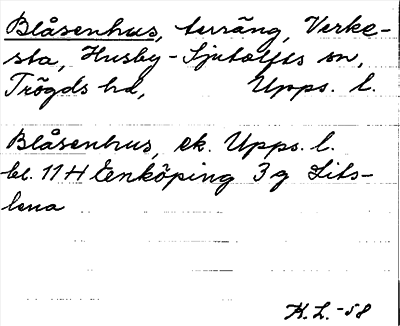 Blåsenhus, terräng, Verke-
sta, Husby-Sjutolfts sn,
Trögds hd, Upps. l.
Blåsenhus, ek. Upps. l.
bl. 11 H Enköping 3 g Lits-
lena
K.L.-58